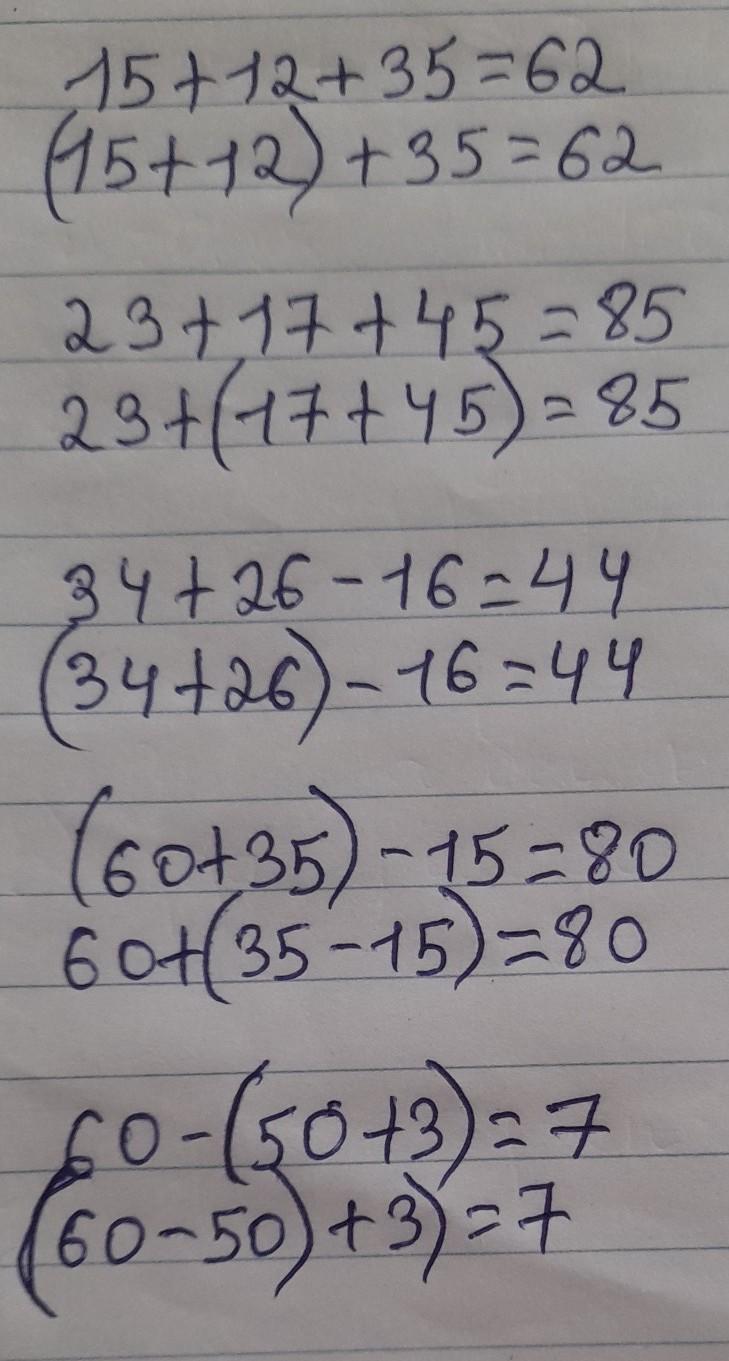 15+12+35=62
(15+12)+35=62
23+17+45=85
23+(17+45)=85
34+26-16=44
(34+26)-16=44
(60+35)-15=80
60+(35-15)=80
60-(50+3)=7
(60-50)+3)=7